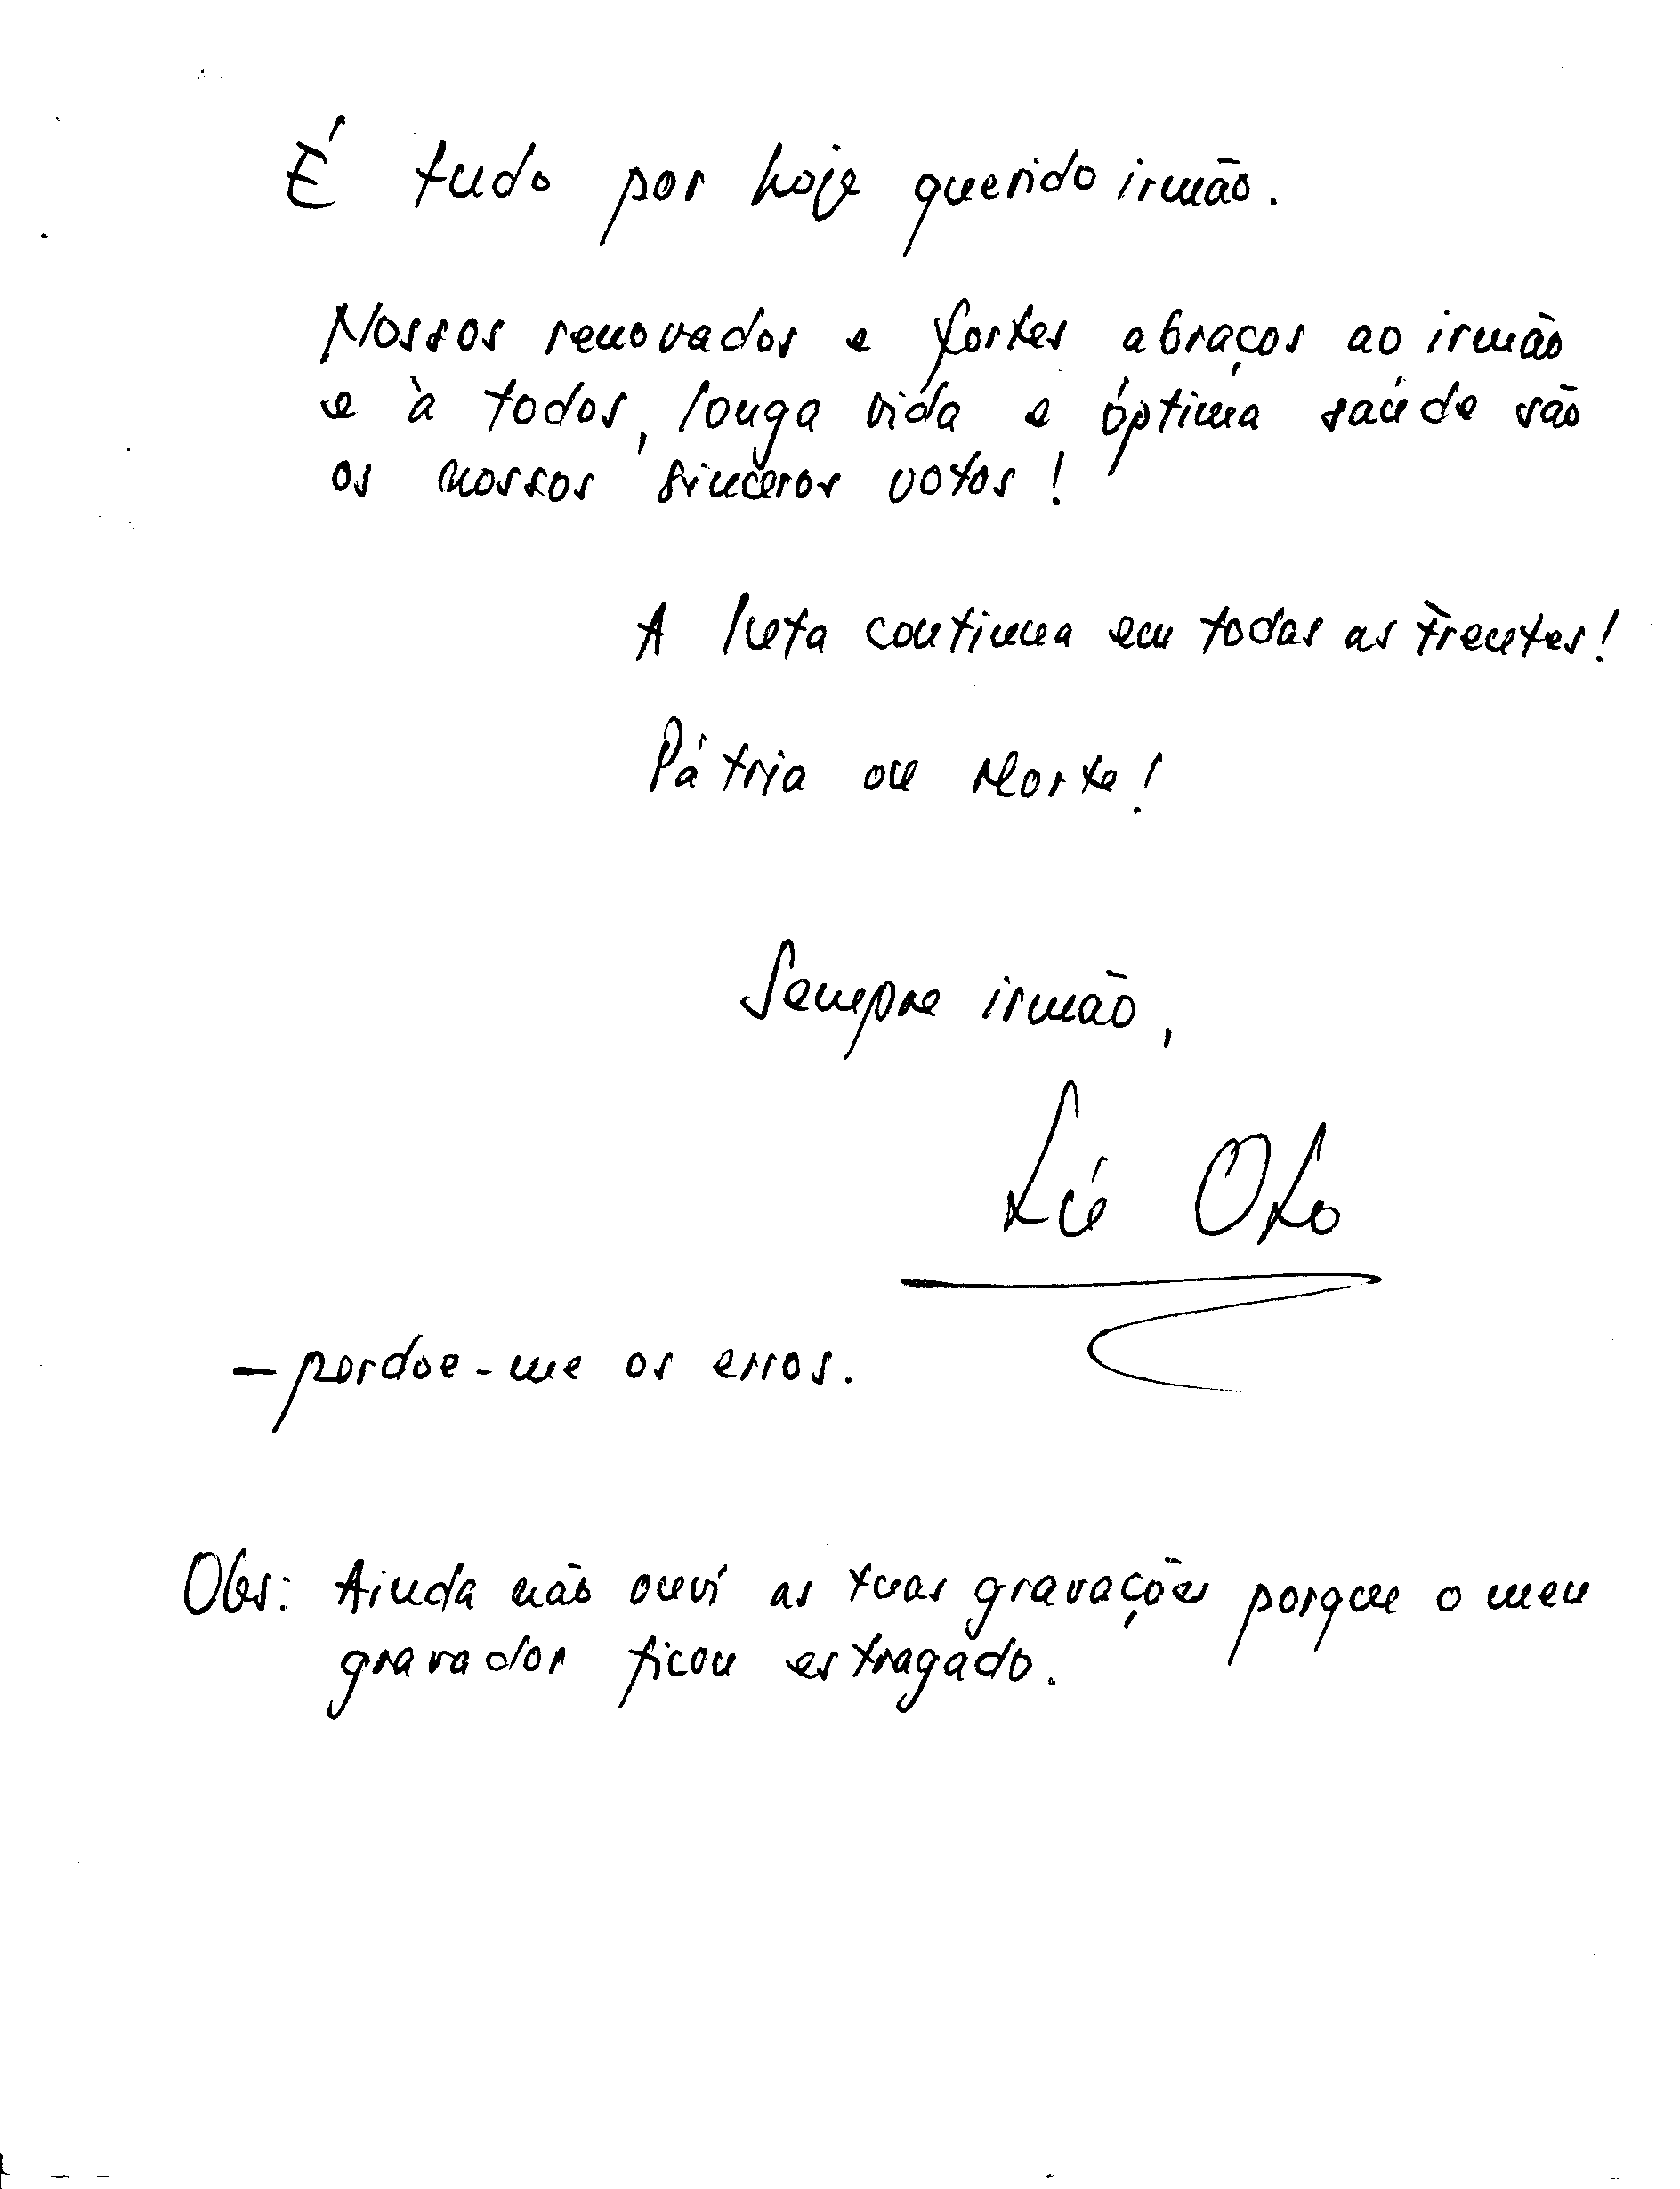 É tudo por hoje querido irmão.
Nossos renovados e fortes abraços ao irmão
e à todos, longa vida e óptima saúde são
os nossos sinceros votos!
A luta continua em todas as frentes!
Pátria ou Morte!
Sempre irmão,
Lú Olo
- perdoe-me os erros.
Obs: Ainda não ouví as tuas gravações porque o meu
gravador ficou estragado.